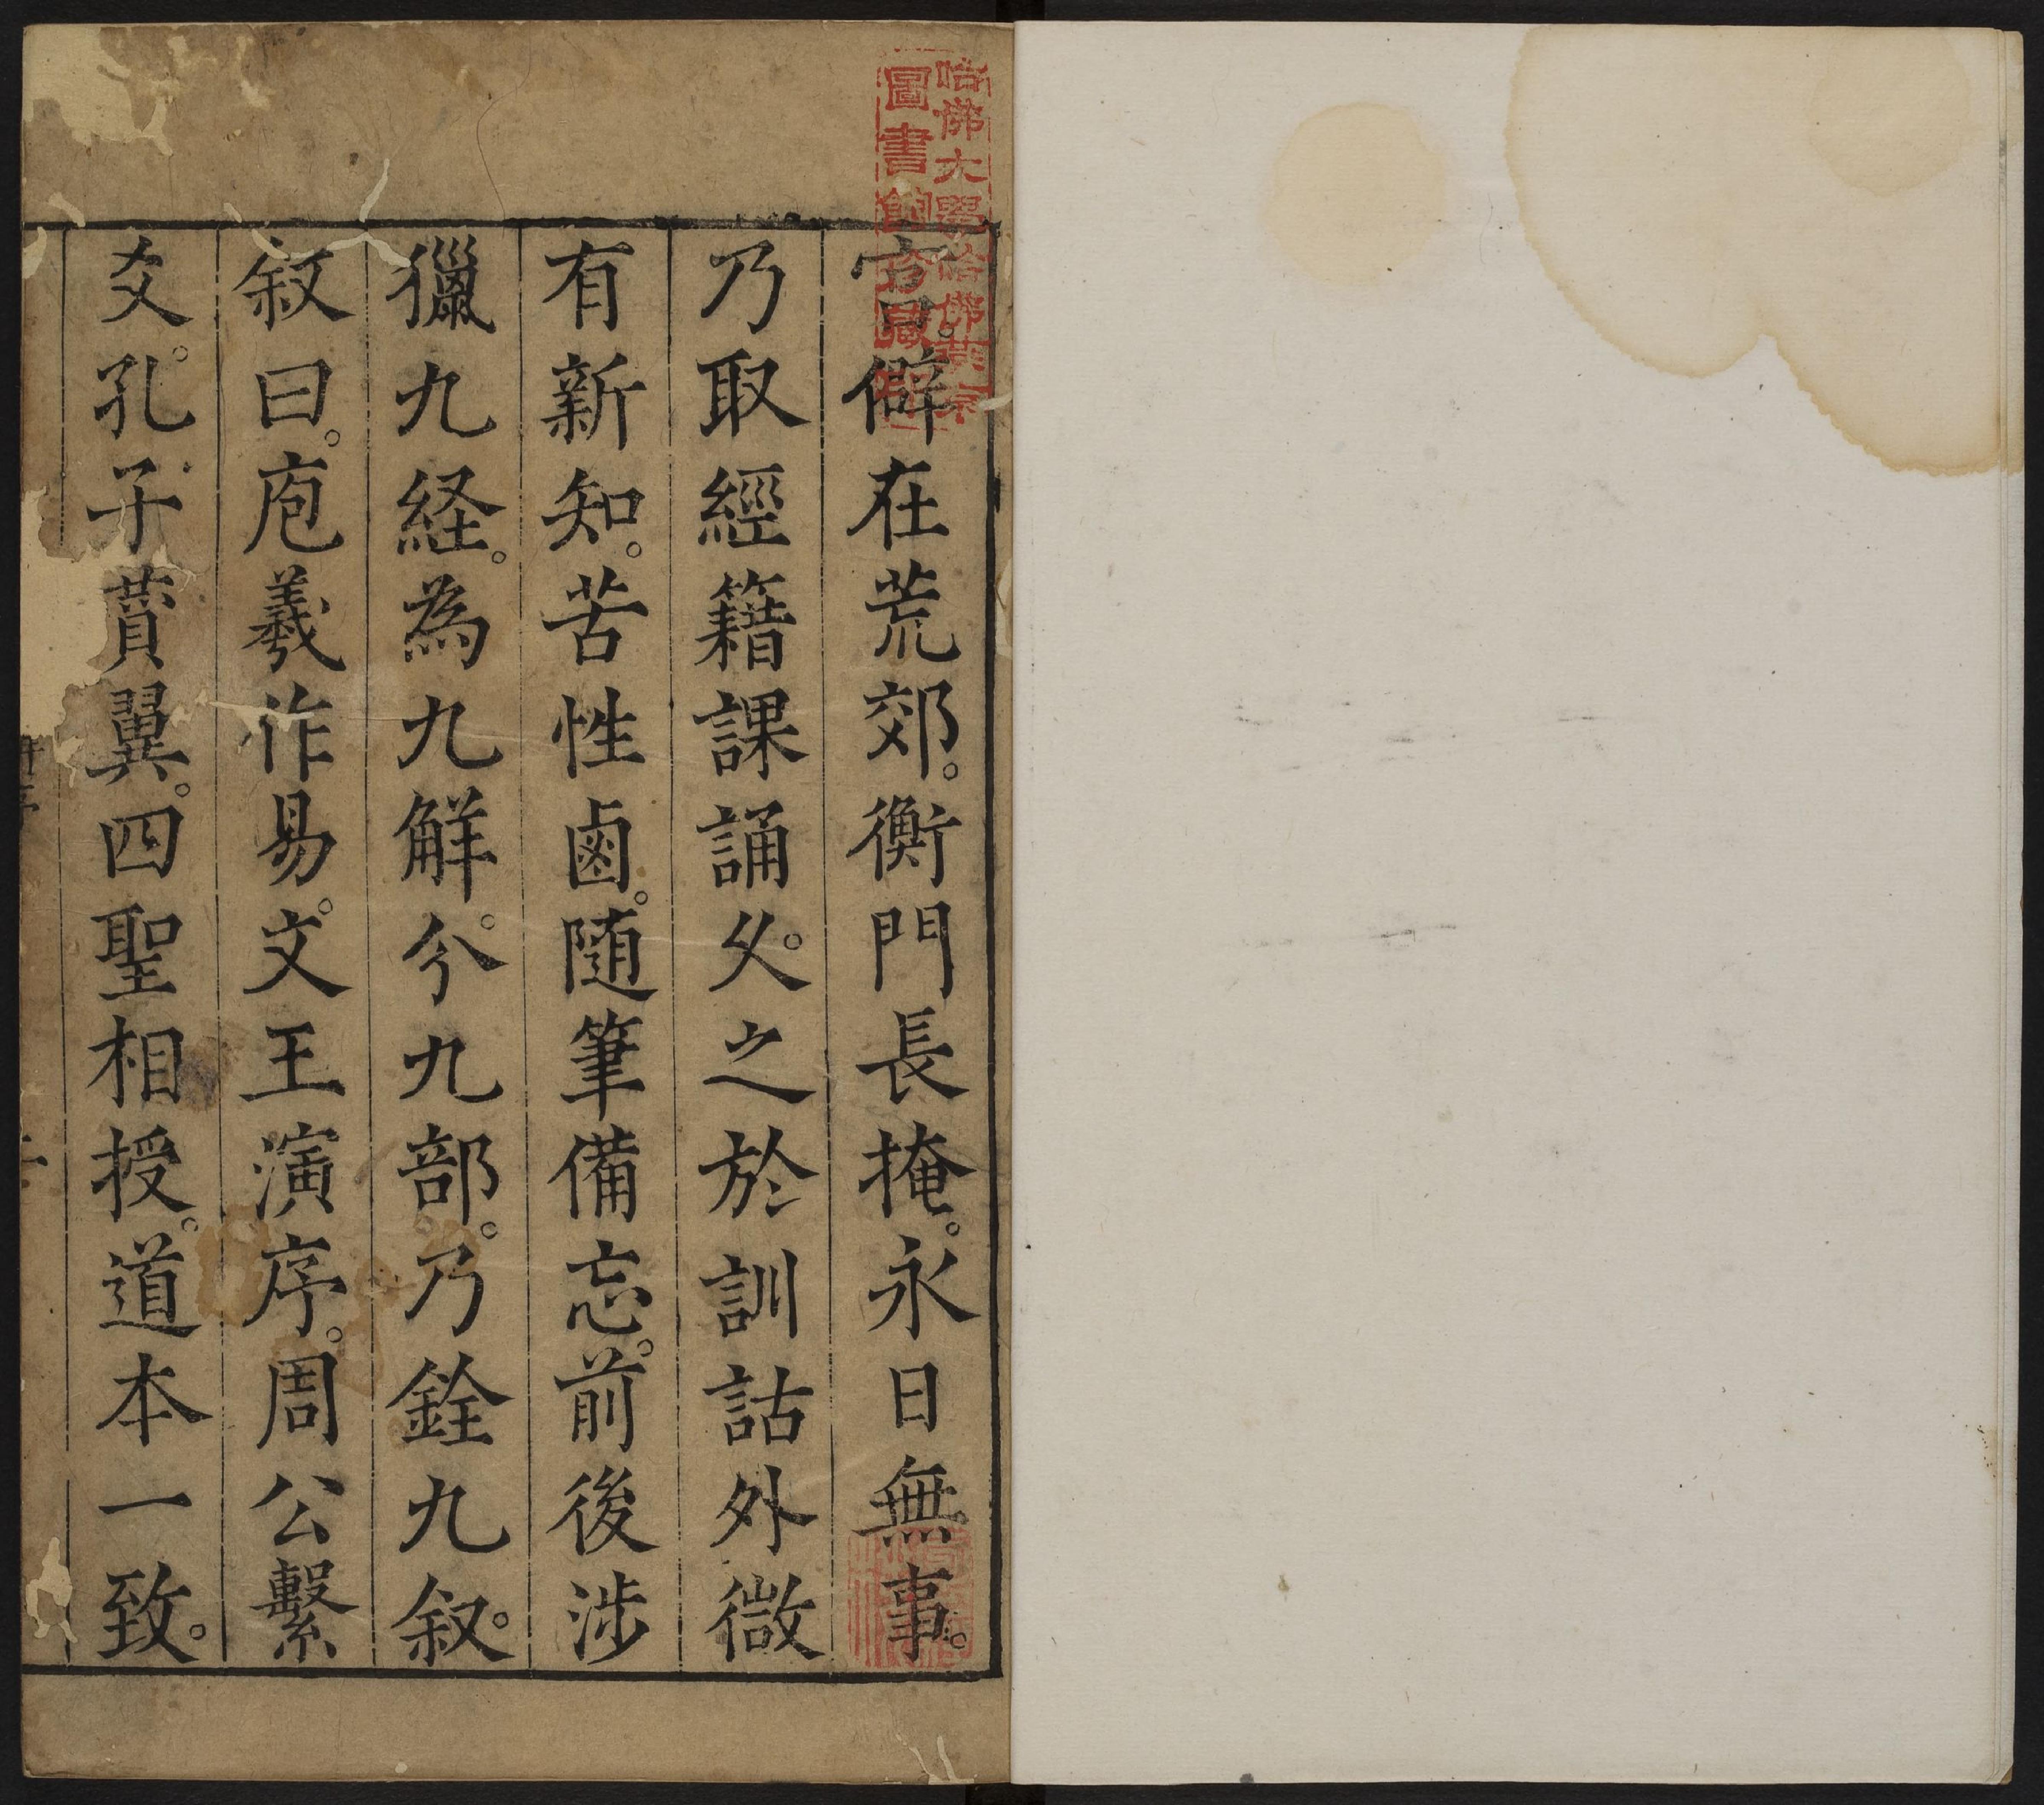 哈佛大學哈佛燕京
圖書館珍藏印
僻在荒郊。衡門長掩。永日無事。
乃取經籍課誦。久之於訓詁外微
有新知。苦性鹵。随筆備忘。前後涉
獵九経。為九解。分九部。乃銓九叙。
叙曰。庖羲作易。文王演序。周公繫
爻。孔子賛翼。四聖相授。道本一致。